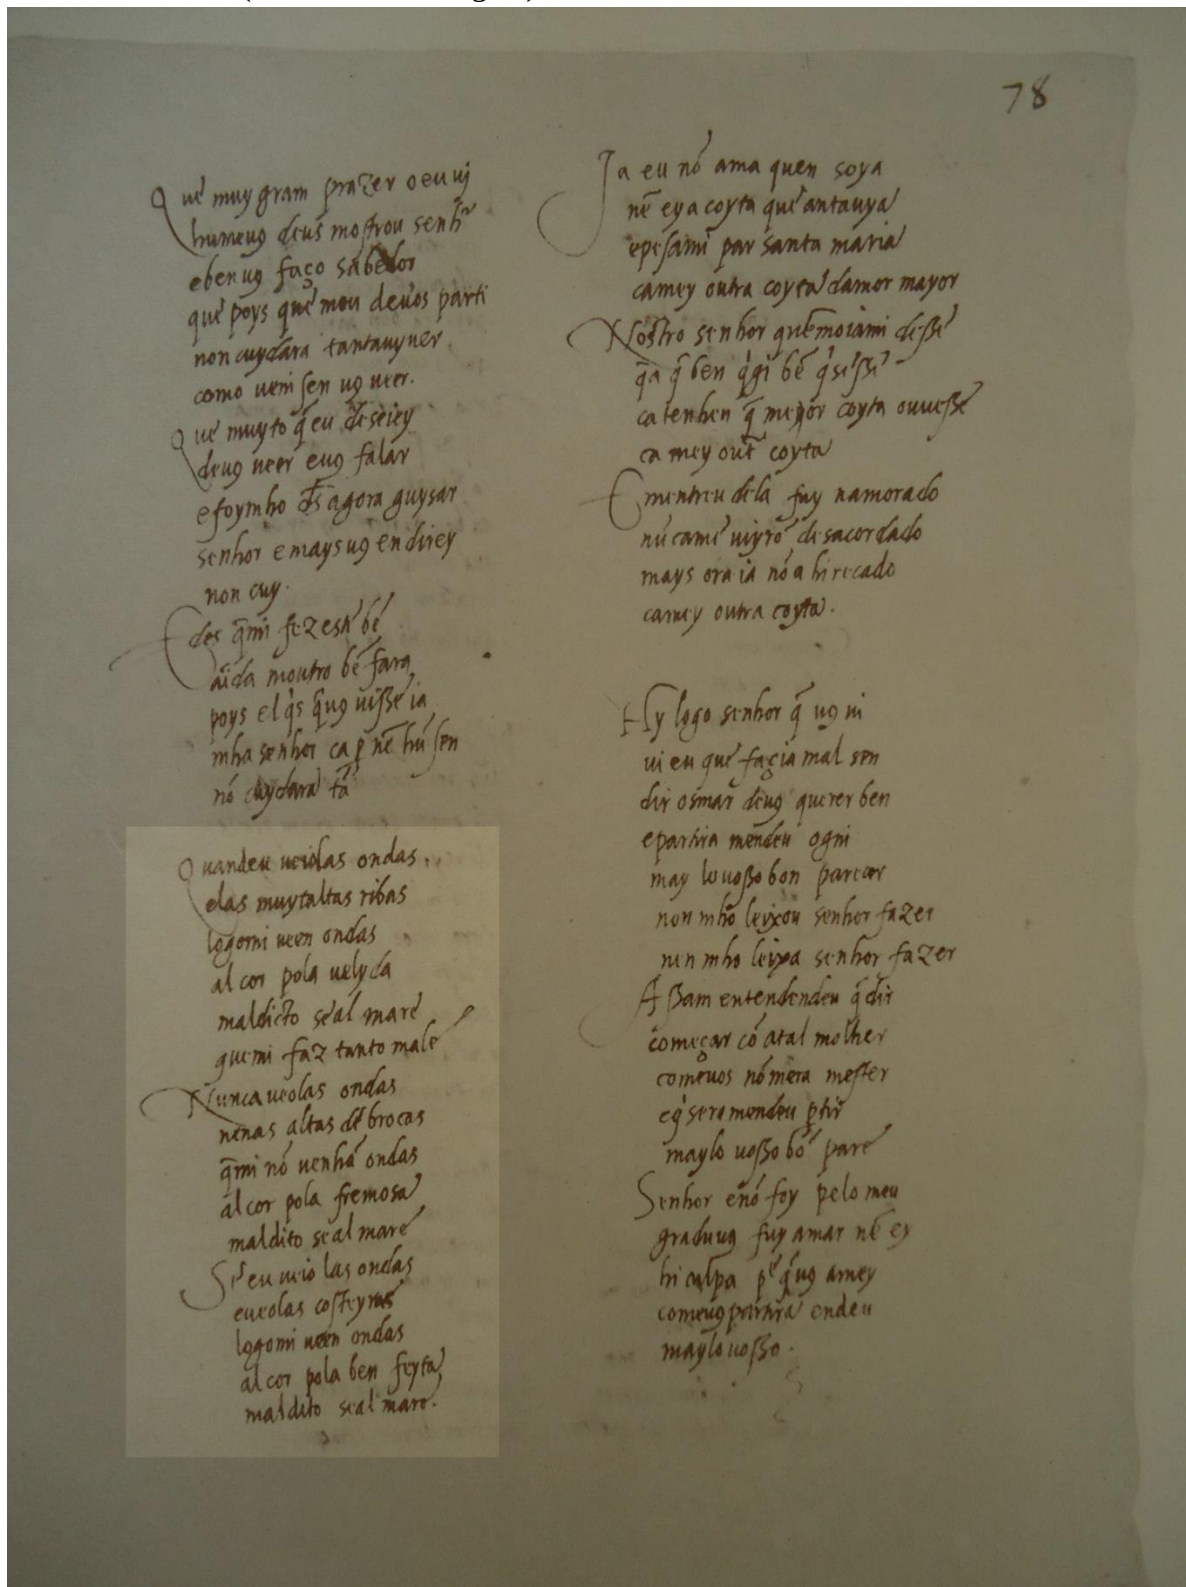 78
Que muy gram prazer oeu vj
humeuꝯ deus mostrou senhr
ebenuꝯ faço sabedor
que poys que mou deuos parti
non cuydara tantauyuer
como uem sen uꝯ ueer.
Que muyto q̄ eu deseiey
deuꝯ ueer euꝯ falar
efoymho ds̄ agora guysar
senhor e mays uꝯ endirey
non cuy.
E des q̄mi fezest bē
aīda moutro bē fara
poys el q's q̄uꝯ uisse ia
mha senhor ca p nē hū sen
nō cuydara tā
Quandeu ueiolas ondas
elas muytaltas ribas
logomi ueen ondas
al cor pola uelyda
maldicto seal mare
que mi faz tanto male
Nunca ueolas ondas
nenas altas debrocas
q̄mi nō uenhā ondas
al cor pola fremosa
maldito seal mare
Se eu ueio las ondas
eueolas costeyras
logomi ueen ondas
al cor pola ben feyta
maldito seal mare.
Ja eu nō ama quen soya
nē eya coyta que antauya
epesami par santa maria
camey outra coyta damor mayor
Nostro senhor quēmoiami desse
q̄a q̄ ben q'gi bē q'sesse
ca tenhen q̄ menor coyta ouuesse
ca mey out coyta
E mentreu dela fuy namorado
nūcame uiyrō desacordado
mays ora ia nō a hi recado
camey outra coyta.
Hy logo senhor q̄ uꝯ ui
ui eu que facia mal sen
dir osmar deuꝯ querer ben
epartira mendeu ogni
may lo uosso bon parecer
non mho leixou senhor fazer
nen mho leixa senhor fazer
Assam entendendeu q̄ dir
começar cō atal molher
comeuos nō mera mester
eq'sero mendeu ptir
maylo uosso bō pare
Senhor enō foy pelo meu
graduuꝯ fuy amar nē ey
hi culpa pē q̄uꝯ amey
comeuꝯ partira endeu
maylo uosso.